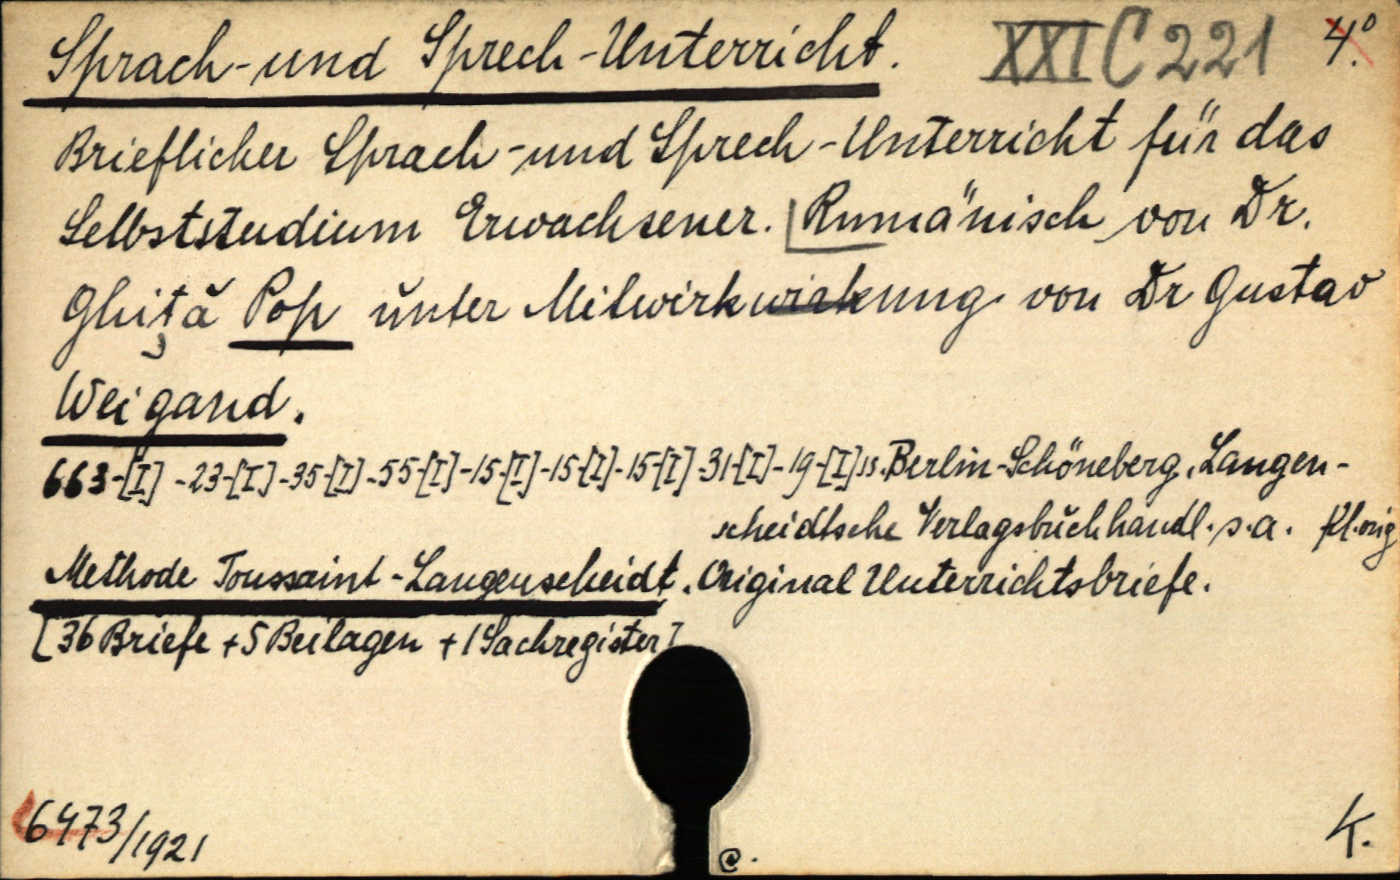 Sprach-und Sprech-Unterricht. XXI C 221 4.⁰
Brieflicher Sprach-und Sprech-Unterricht für das
Selbststudium Erwachsener. Rumänisch von Dr.
Ghiţă Pop unter Mitwirkwirkung von Dr Gustav
Weigand.
663-[I]-23-[I]-35-[I]-55-[I]-15-[I]-15-[I]-15-[I]-31-[I]-19-[I] s. Berlin-Schöneberg, Langen-
scheidtsche Verlagsbuchhandl. s.a. Kl. orig
Methode Toussaint-Langenscheidt. Original Unterrichtsbriefe.
[36 Briefe + 5 Beilagen + 1 Sachregister]
6473/1921
K.